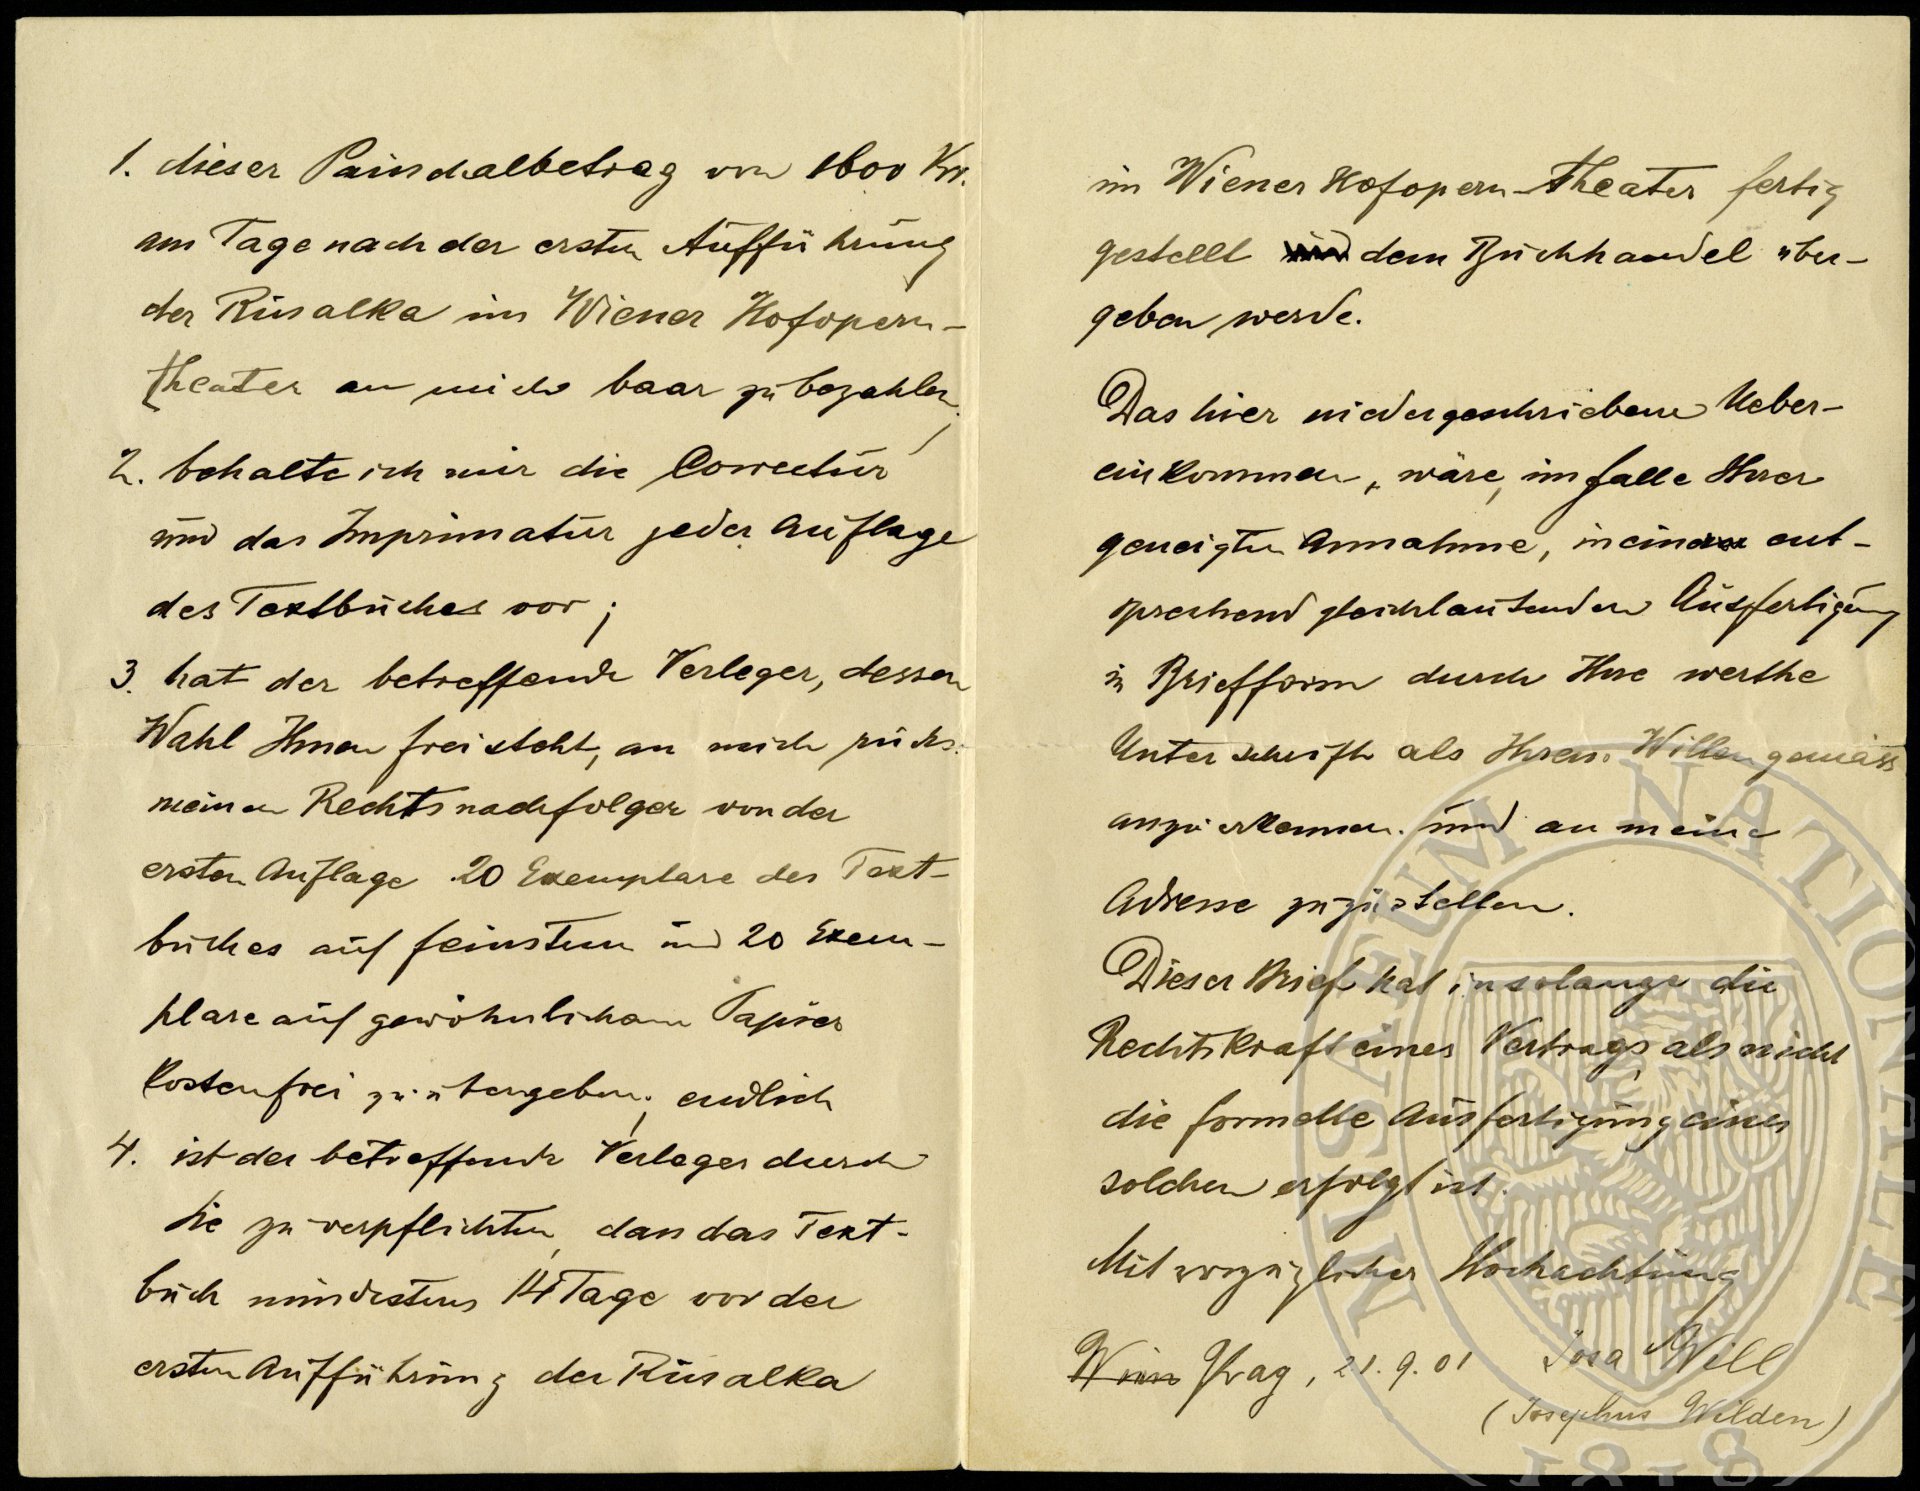 1. dieser Pauschalbetrag von 1600 Kr.
am Tage nach der ersten Aufführung
der Rusalka im Wiener Hofopern-
theater an mich baar zu bezahlen;
2. behalte ich mir die Correctur
und das Imprimatur jeder Auflage
des Textbuches vor;
3. hat der betreffende Verleger, dessen
Wahl Ihnen freisteht, an mich rücks.
meinen Rechtsnachfolger von der
ersten Auflage 20 Exemplare des Text-
buches auf feinstem und 20 Exem-
plare auf gewöhnlichem Papier
kostenfrei zu übergeben; endlich
4. ist der betreffende Verleger durch
Sie zu verpflichten, dass das Text-
buch mindestens 14 Tage vor der
ersten Aufführung der Rusalka
im Wiener Hofopern-Theater fertig
gestellt und dem Buchhandel über-
geben werde.
Das hier niedergeschriebene Ueber-
einkommen, wäre, im falle Ihrer
geneigten Annahme, in einer ent-
sprechend gleichlautenden Ausfertigung
in Briefform durch Ihre werthe
Unterschrift als Ihrem Willen gemäss
anzuerkennen und an meine
Adresse zuzustellen.
Dieser Brief hat insolange die
Rechtskraft eines Vertrags, als nicht
die formelle Ausfertigung eines
solchen erfolgt ist.
Mit vorzüglicher Hochachtung
Wien Prag, 21.9.01 Josa Will
(Josephus Wilden)
MUSAEUM NATIONALE
1818